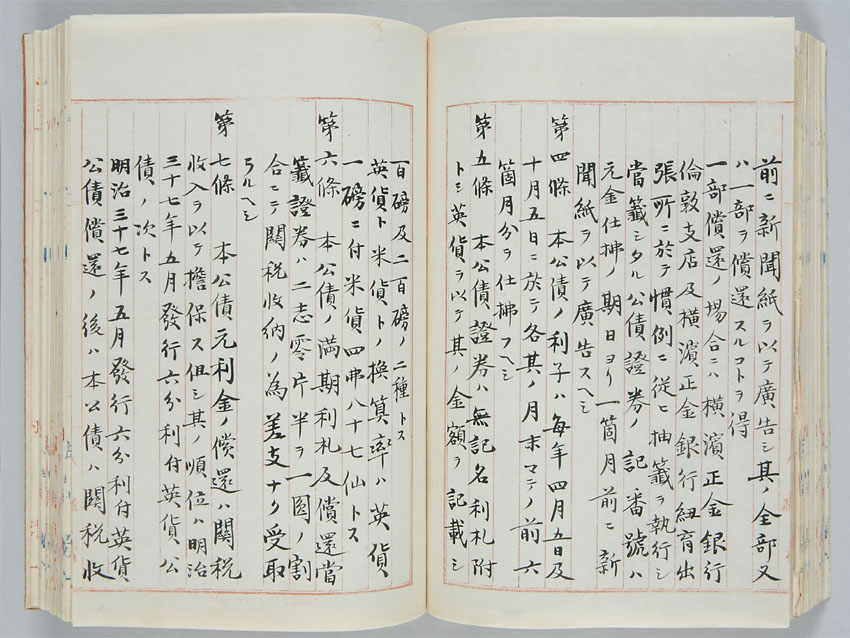 前ニ新聞紙ヲ以テ廣告シ其ノ全部又
ハ一部ヲ償還スルコトヲ得
一部償還ノ場合ニハ横濱正金銀行
倫敦支店及横濱正金銀行紐育出
張所ニ於テ慣例ニ從ヒ抽籤ヲ執行シ
當籤シタル公債證券ノ記番號ハ
元金仕拂ノ期日ヨリ一箇月前ニ新
聞紙ヲ以テ廣告スヘシ
第四條 本公債ノ利子ハ毎年四月五日及
十月五日ニ於テ各其ノ月末マテノ前六
箇月分ヲ仕拂フヘシ
第五條 本公債證券ハ無記名利札附
トシ英貨ヲ以テ其ノ金額ヲ記載シ
百磅及二百磅ノ二種トス
英貨ト米貨トノ換算率ハ英貨
一磅ニ付米貨四弗八十七仙トス
第六條 本公債ノ満期利札及償還當
籤證券ハ二志零片半ヲ一圓ノ割
合ニテ關税收納ノ為差支ナク受取
ラルヘシ
第七條 本公債元利金ノ償還ハ關税
收入ヲ以テ擔保ス但シ其ノ順位ハ明治
三十七年五月發行六分利付英貨公
債ノ次トス
明治三十七年五月發行六分利付英貨
公債償還ノ後ハ本公債ハ關税收